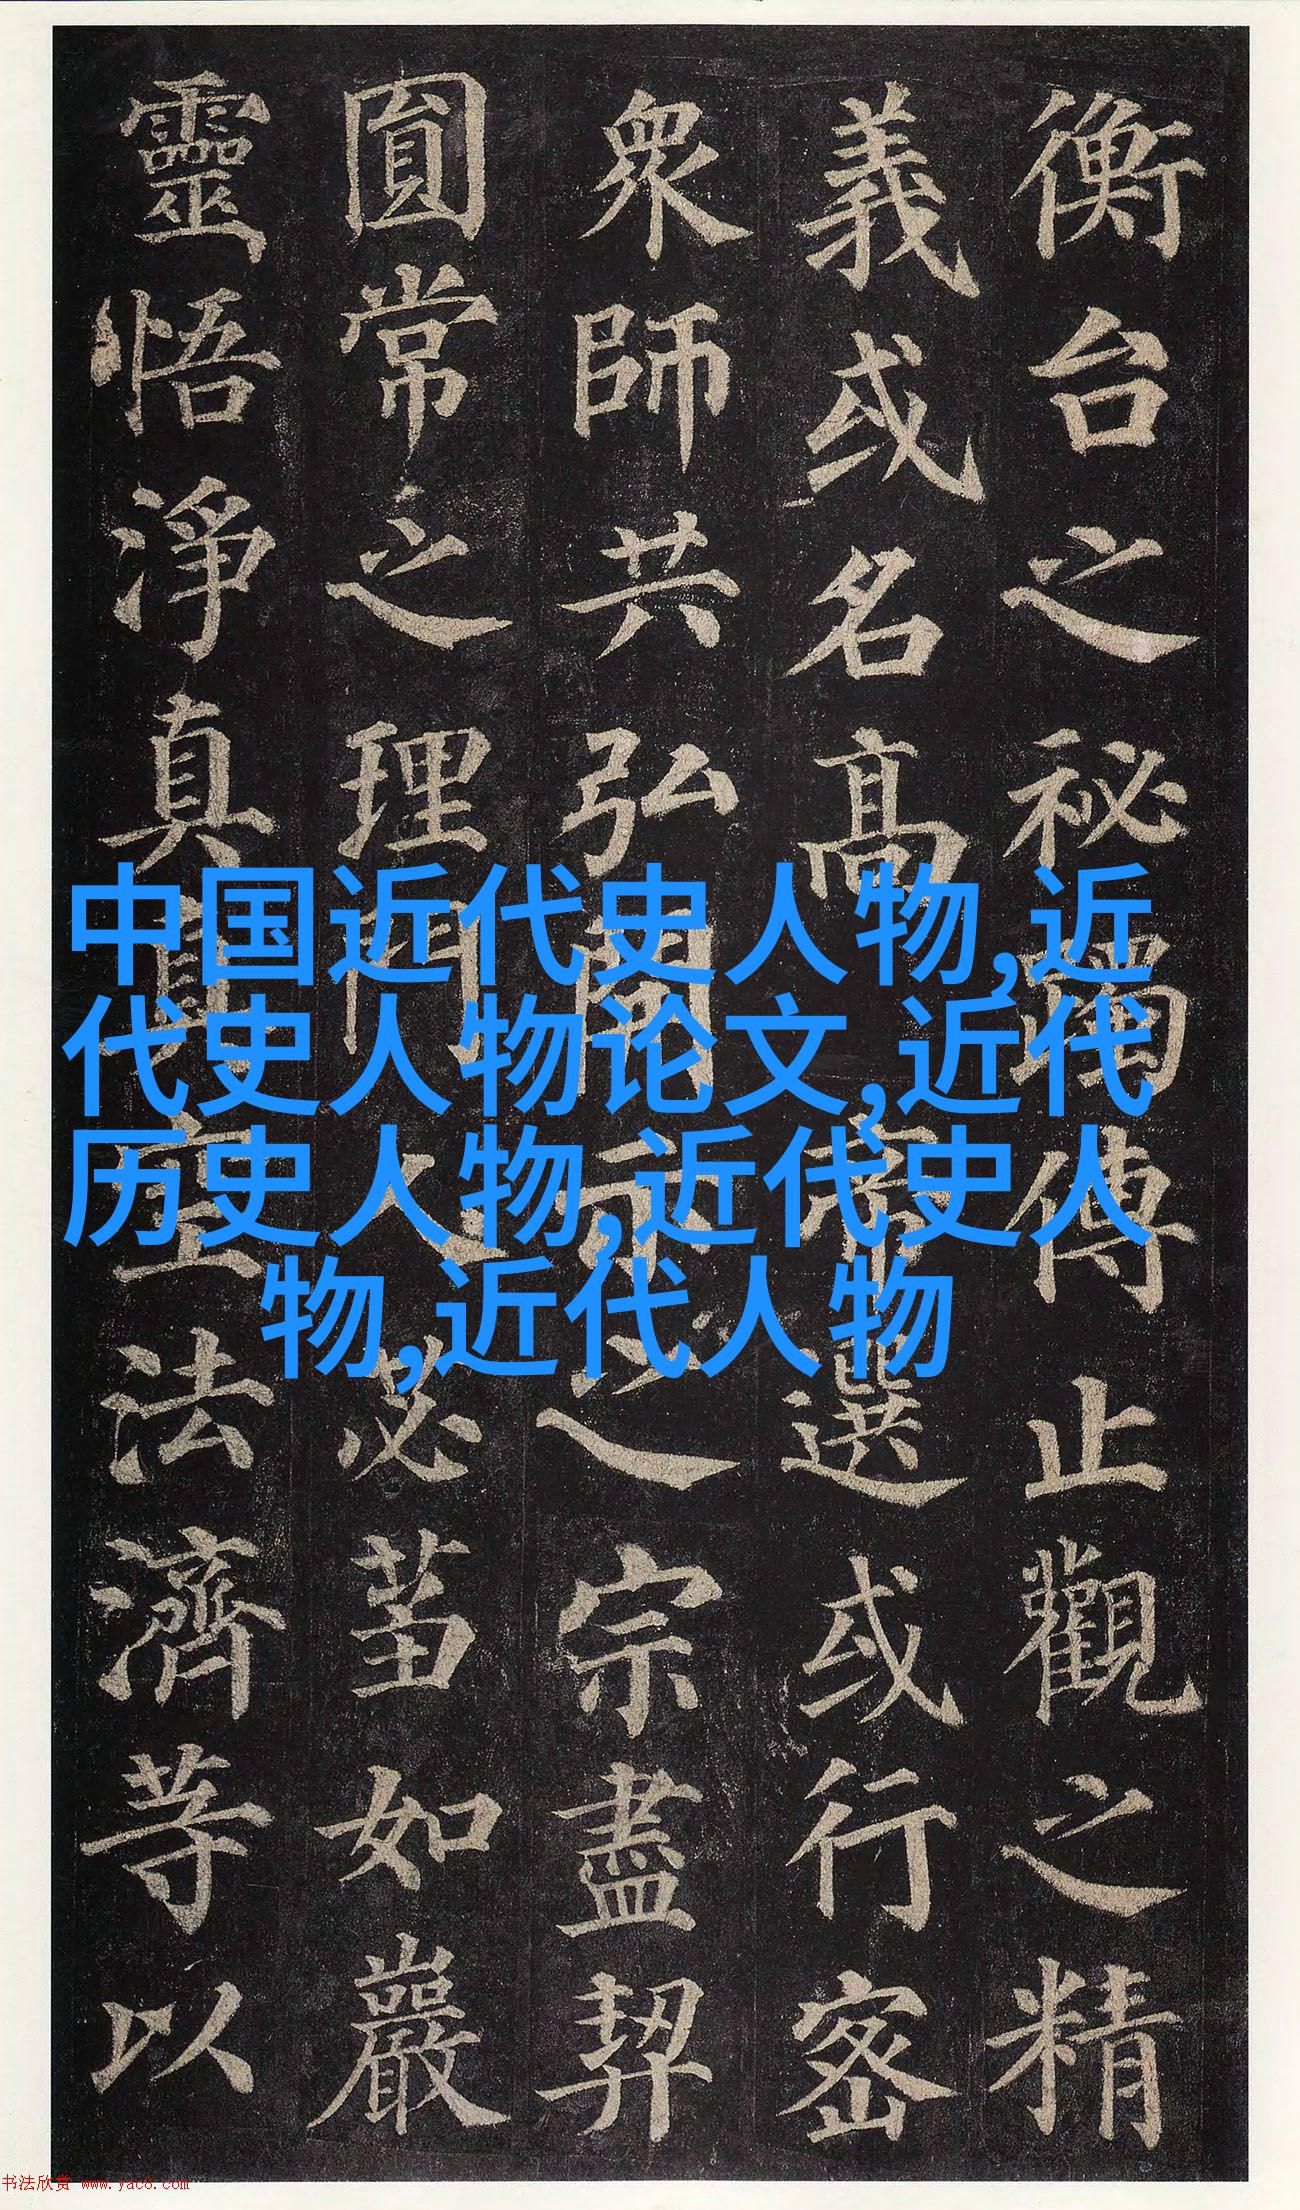 衡台之秘躅傳止觀之精
義或名高帝選或行密
衆師共弘開示之宗盡契
圓常之理門人苾蒭如巖
靈悟淨真真空法濟等以
中国近代史人物,近
代史人物论文,近代
历史人物,近代史人
物,近代人物
书法欣赏 www.yac8.com